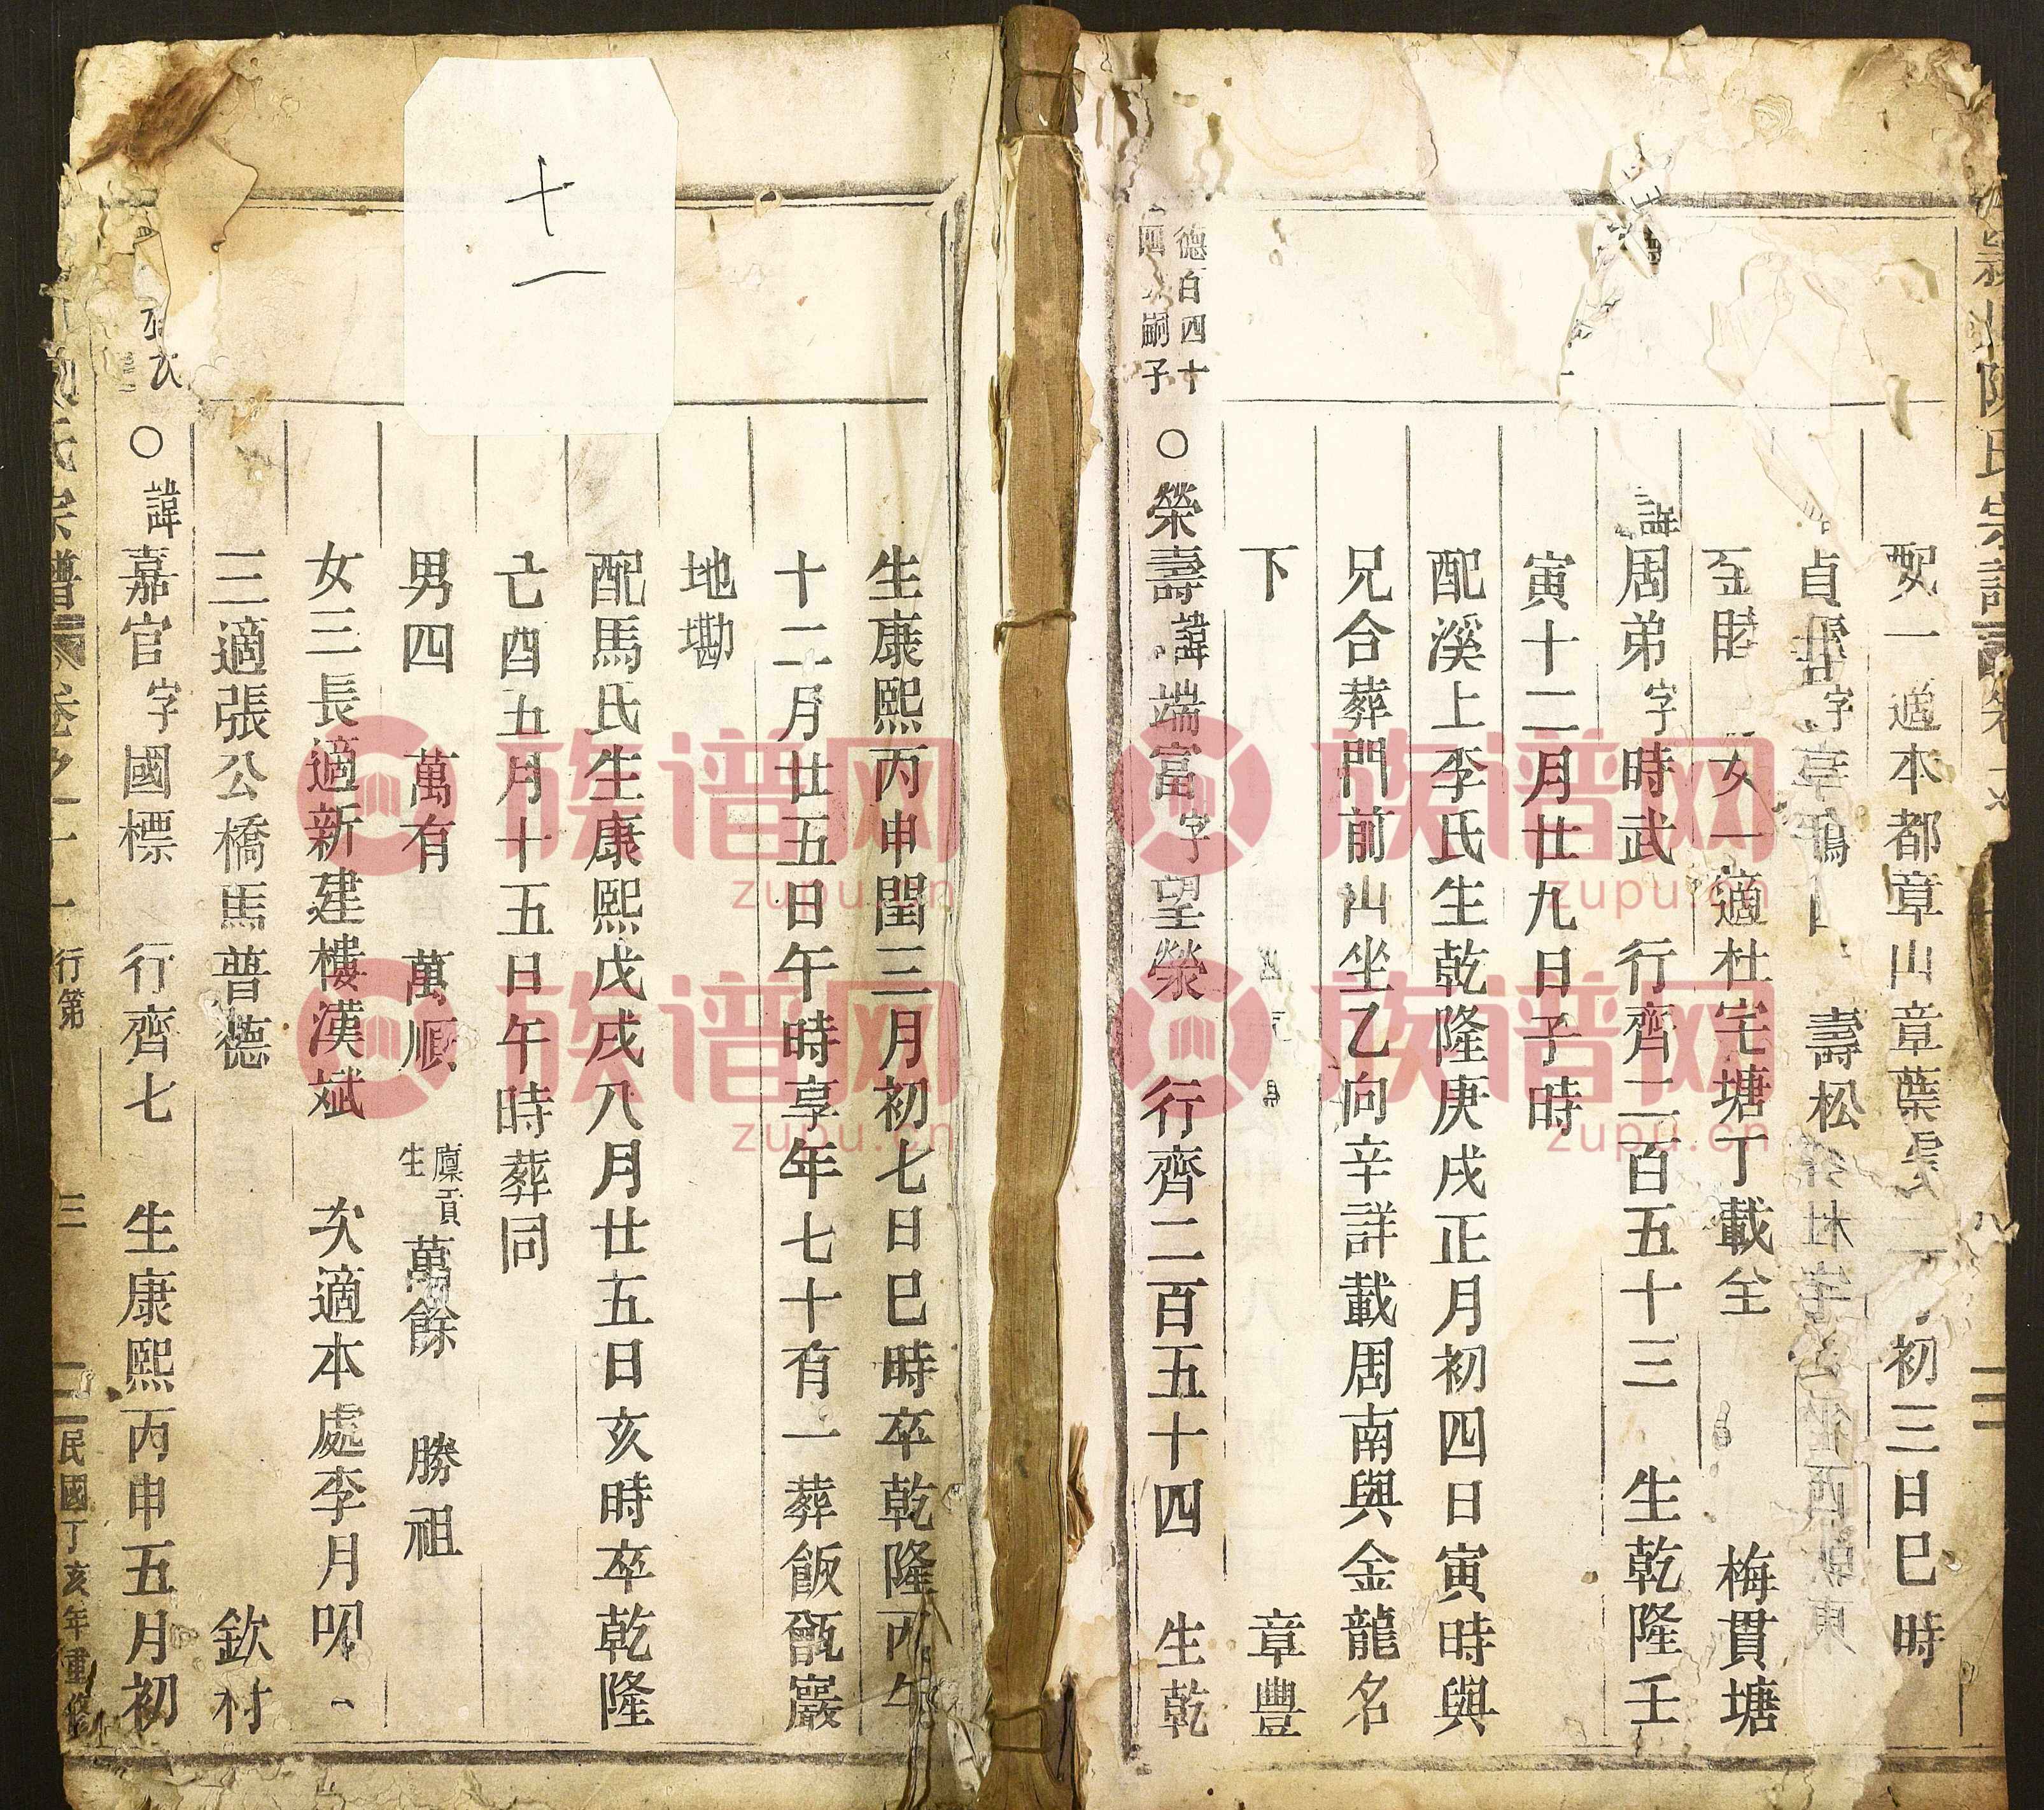 陳氏宗譜
配 一適本都章山章葉 初三日巳時
貞 字 壽松
女一適杜宅塘丁載全 梅貫塘
諱周弟字時武 行齊二百五十三 生乾隆壬
寅十二月廿九日子時
配溪上李氏生乾隆庚戌正月初四日寅時與
兄合葬門前山坐乙向辛詳載周南與金龍名
下 章豐
德百四十
嗣子
○榮壽諱端富字望榮 行齊二百五十四 生乾
十一
生康熙丙申閏三月初七日巳時卒乾隆丙午
十二月廿五日午時享年七十有一葬飯甑巖
地墈
配馬氏生康熙戊戌八月廿五日亥時卒乾隆
己酉五月十五日午時葬同
男四 萬有 萬順 廩貢生萬餘 勝祖
女三長適新建樓漢斌 次適本處李月
三適張公橋馬普德 欽村
○諱嘉官字國標 行齊七 生康熙丙申五月初
氏宗譜 卷之十一 行第 三 民國丁亥年重修
族谱网
zupu.cn
族谱网
zupu.cn
族谱网
zupu.cn
族谱网
zupu.cn